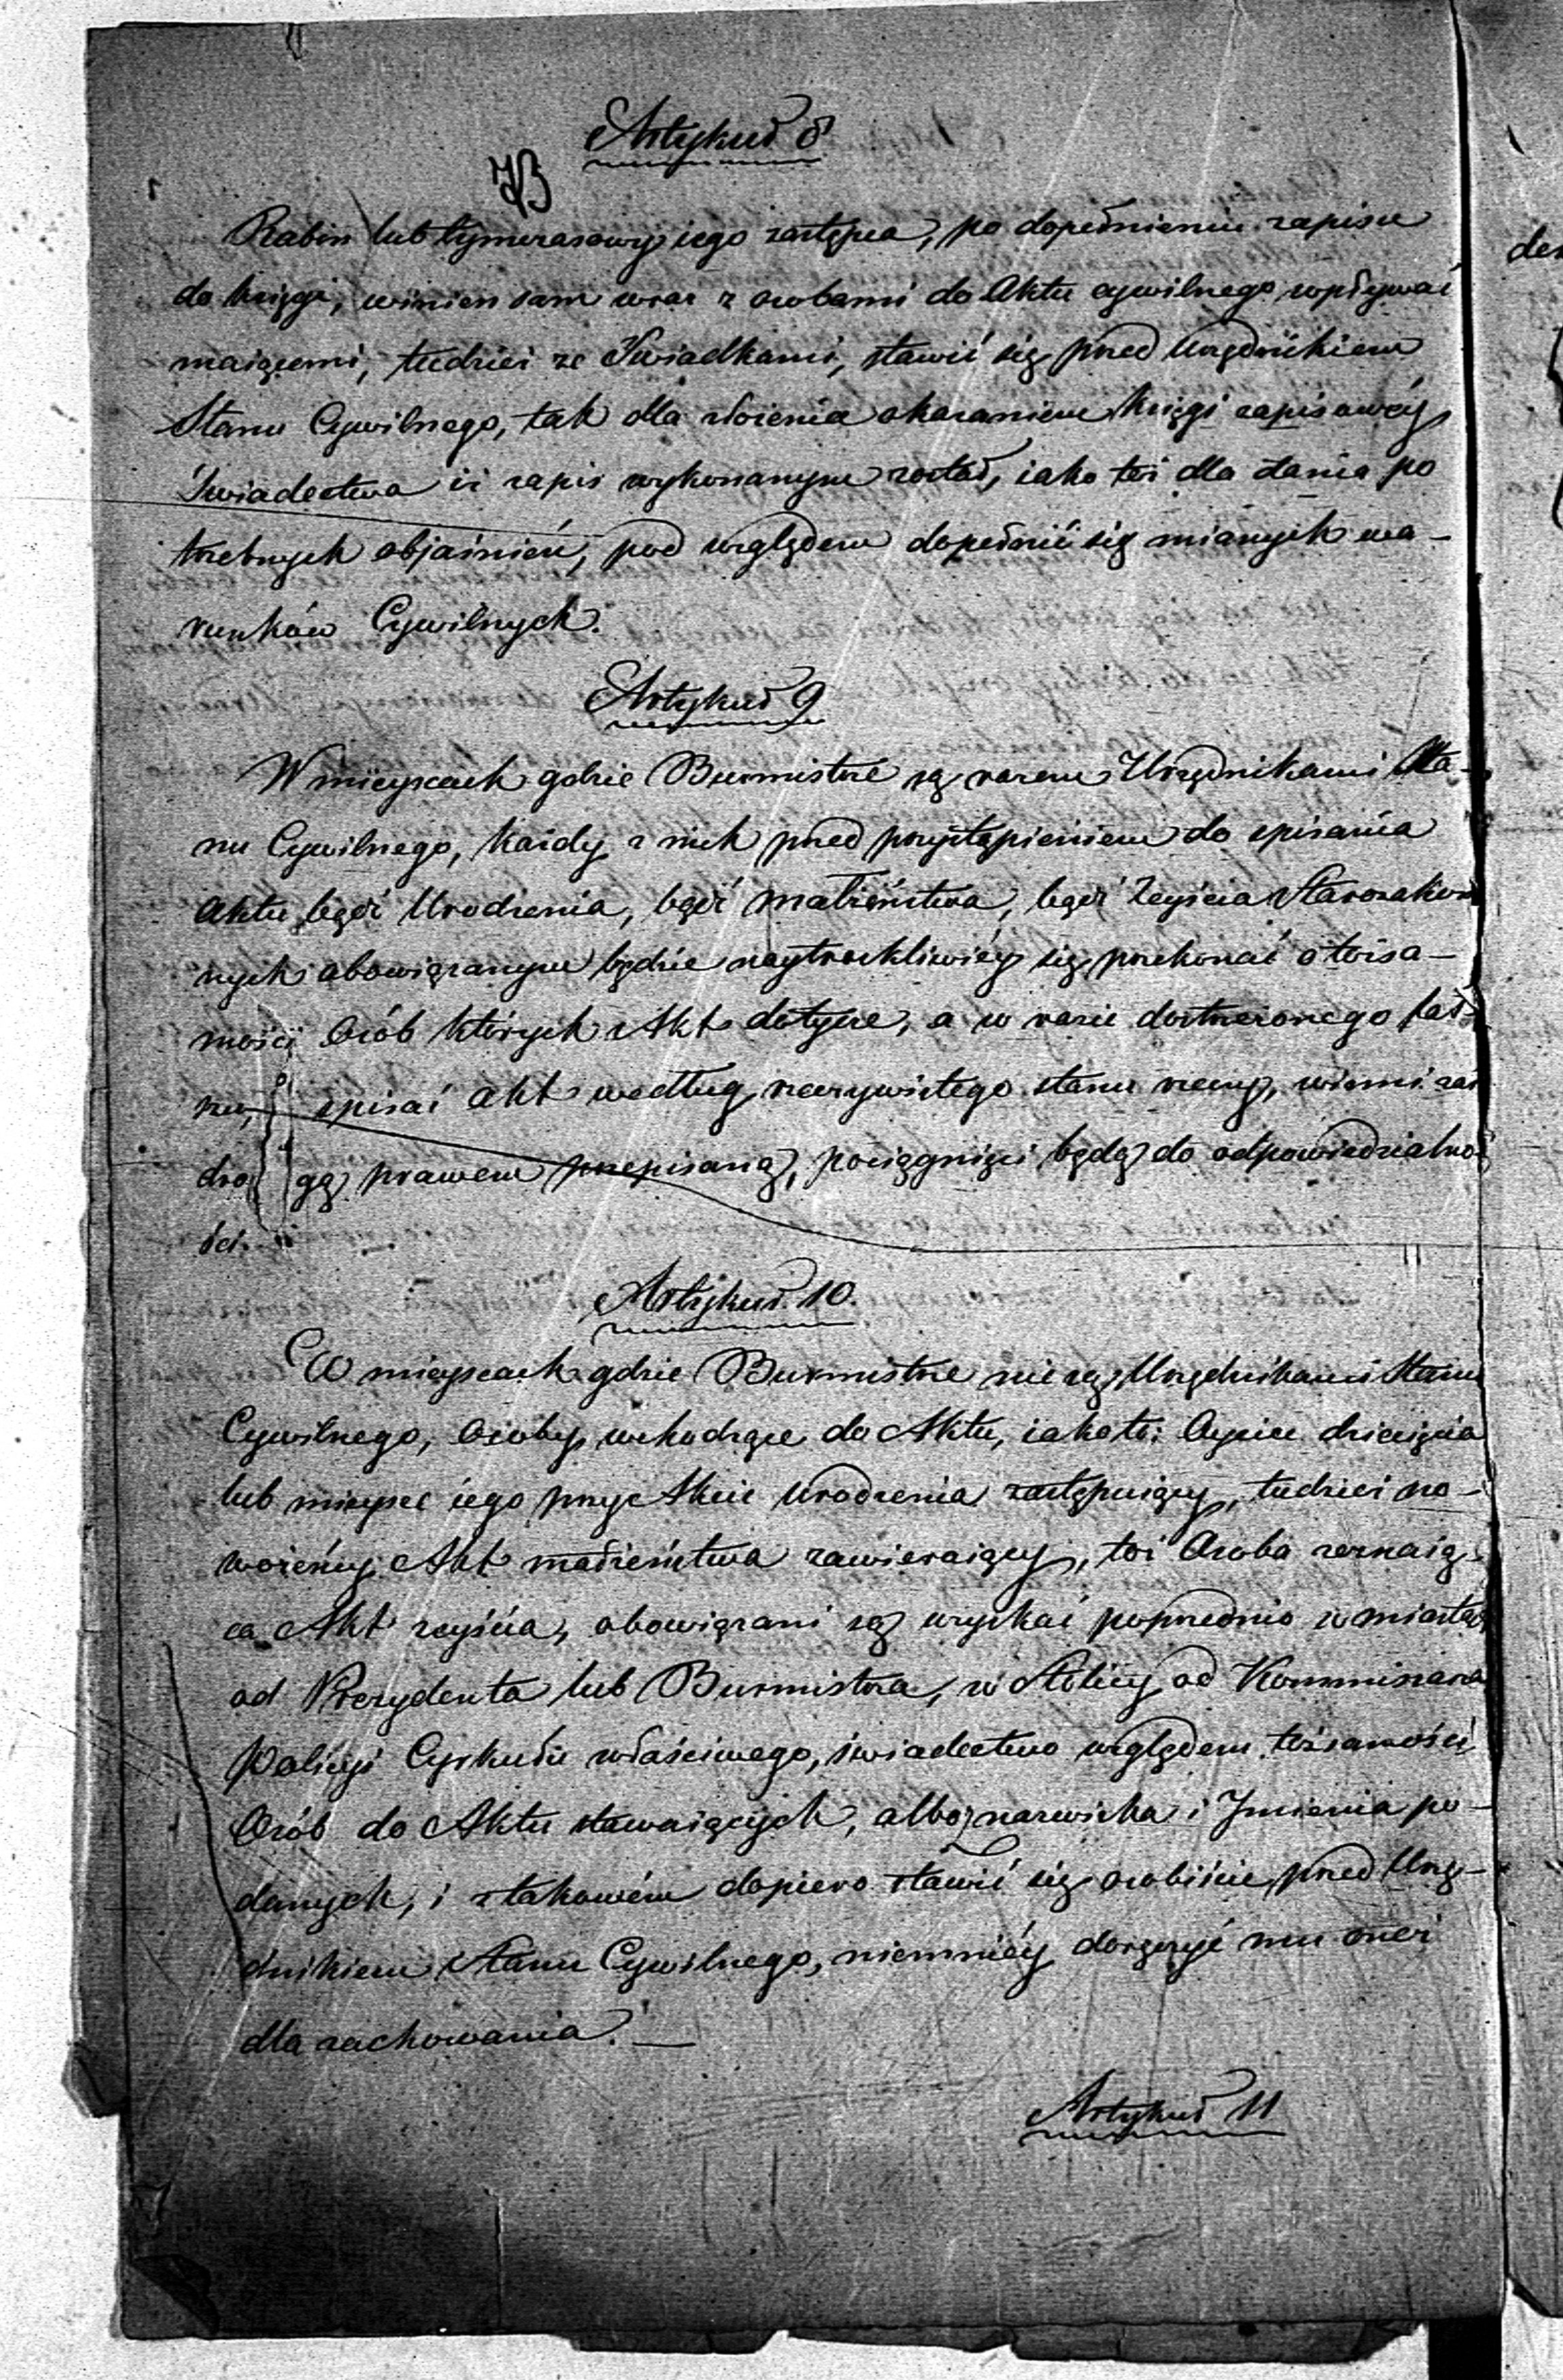 Artykuł 8
Rabin lub tymczasowy iego zastępca, po dopełnieniu zapisu
do księgi, winien sam wraz z osobami do Aktu cywilnego wpływać
maiącemi, tudzież ze Świadkami, stawić się przed Urzędnikiem
Stanu Cywilnego, tak dla złożenia okazaniem księgi zapisowéy
Świadectwa iż zapis wykonanym został, iako też dla dania po
trzebnych objaśnień, pod względem dopełnić się mianych wa-
runków Cywilnych.
Artykuł 9
W mieyscach gdzie Burmistrze są razem Urzędnikami Sta-
nu Cywilnego, każdy z nich przed przystąpieniem do spisania
Aktu bądź Urodzenia, bądź małżeństwa, bądź Zeyścia Starozakon
nych obowiązanym będzie naytroskliwiéy się przekonać o tożsa-
mości Osób których Akt dotycze, a w razie dostrzeżonego fał-
szu, spisać Akt według rzeczywistego stanu rzeczy, winni zaś
dro gą prawem przepisaną, pociągnięci będą do odpowiedzialno
ści.
Artykuł 10.
W mieyscach gdzie Burmistrze nie są Urzędnikami Stanu
Cywilnego, Osoby wchodzące do Aktu, iako to: Oyciec dziecięcia
lub mieysce iego przy Akcie Urodzenia zastępuiący, tudzież no-
wożeńcy Akt małżeństwa zawieraiący, toż Osoba zeznaią-
ca Akt zeyścia, obowiązani są uzyskać poprzednio w miastach
od Prezydenta lub Burmistrza, w Stolicy od Kommissarza
Policyi Cyrkułu właściwego, świadectwo względem tożsamości
Osób do Aktu stawaiących, albo nazwiska i Imienia po-
danych, i z takowém dopiero stawić się osobiście przed Urzę-
dnikiem Stanu Cywilnego, niemniéy doręczyć mu oneż
dla zachowania. —
Artykuł 11